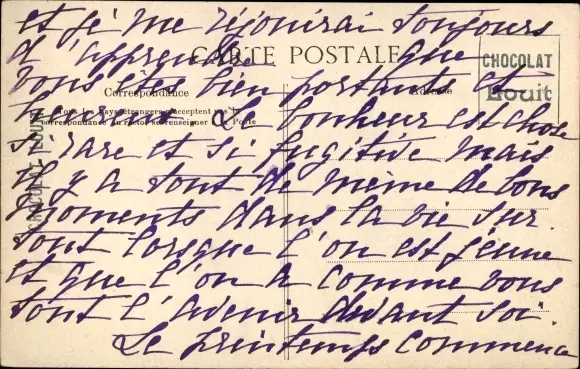 et je me réjouirai toujours
d'apprendre que
CARTE POSTALE
CHOCOLAT
Louit
vous êtes bien portants et
Correspondance
Adresse
Tous les pays étrangers n'acceptent pas la
correspondance au recto se renseigner à la Poste
heureux. Le bonheur est chose
si rare et si fugitive mais
il y a tout de même de bons
moments dans la vie sur
tout lorsque l'on est jeune
et que l'on a comme vous
tout l'avenir devant soi.
Le printemps commence
CHOCOLAT LOUIT